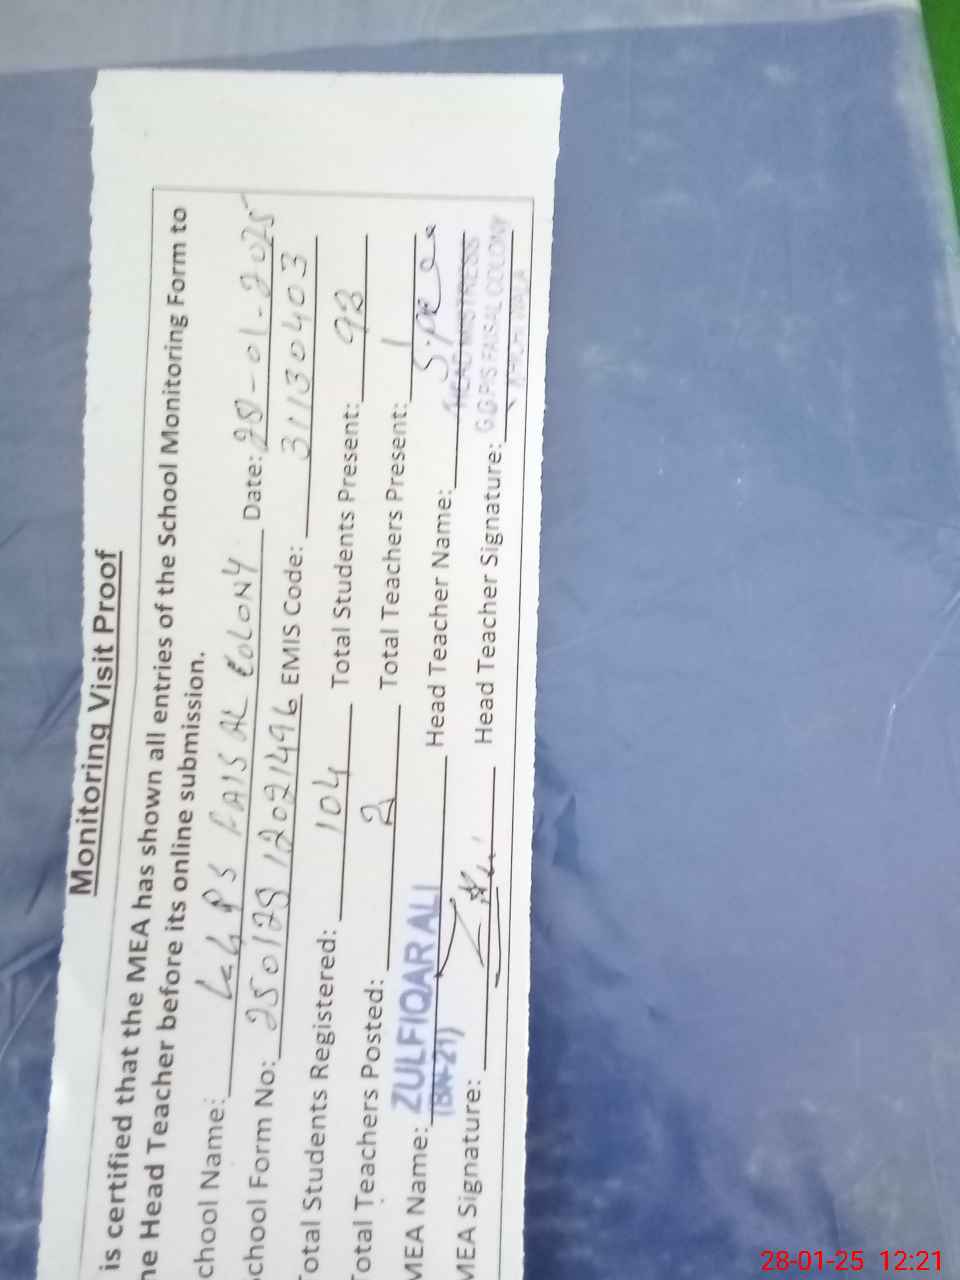 Monitoring Visit Proof
is certified that the MEA has shown all entries of the School Monitoring Form to
he Head Teacher before its online submission.
chool Name: GGPS FAISAL COLONY Date: 28-01-2025
chool Form No: 25012812021496 EMIS Code: 31130403
Total Students Registered: 104 Total Students Present: 93
Total Teachers Posted: 2 Total Teachers Present: 1
MEA Name: ZULFIQAR ALI Head Teacher Name:
(BN-21) HEAD MISTRESS
MEA Signature: Head Teacher Signature: G.G.P/S FAISAL COLONY
28-01-25 12:21